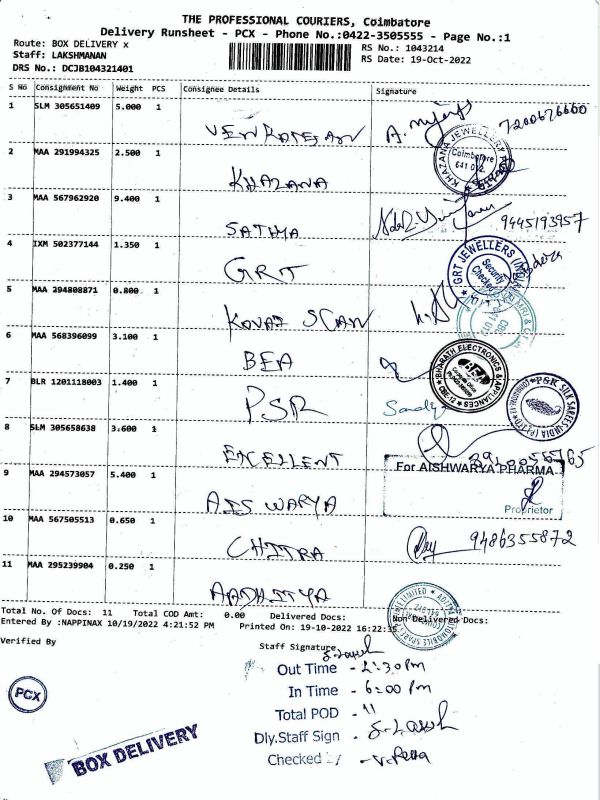 THE PROFESSIONAL COURIERS, Coimbatore
Delivery Runsheet - PCX - Phone No.:0422-3505555 - Page No.:1
Route: BOX DELIVERY x
RS No.: 1043214
Staff: LAKSHMANAN
RS Date: 19-Oct-2022
DRS No.: DCJB104321401
S No Consignment No Weight PCS Consignee Details Signature
1 SLM 305651409 5.000 1
VENKATESAN 7200676660
2 MAA 291994325 2.500 1
KHAZANA KHAZANA JEWELLERY Coimbatore 641 012.
3 MAA 567962920 9.400 1
SATHYA 9445193957
4 IXM 502377144 1.350 1
GRT GRT JEWELLERS Security Checked
5 MAA 294808871 0.800 1
KOVAI SCAN
6 MAA 568396099 3.100 1
BEA BHARATH ELECTRONICS & APPLIANCES BEA
7 BLR 1201118003 1.400 1
PSR PSR SILK SAREES INDIA (P) LTD
8 SLM 305658638 3.600 1
EXCELLENT
9 MAA 294573057 5.400 1
AISWARYA For AISHWARYA PHARMA
Proprietor
10 MAA 567505513 0.650 1
CHITRA 9486355872
11 MAA 295239904 0.250 1
AADHITYA
Total No. Of Docs: 11 Total COD Amt: 0.00 Delivered Docs: Non Delivered Docs:
Entered By :NAPPINAX 10/19/2022 4:21:52 PM Printed On: 19-10-2022 16:22:35
Verified By Staff Signature
Out Time - 2:30 Pm
In Time - 6:00 Pm
Total POD - 11
Dly.Staff Sign -
Checked By -
PCX
BOX DELIVERY